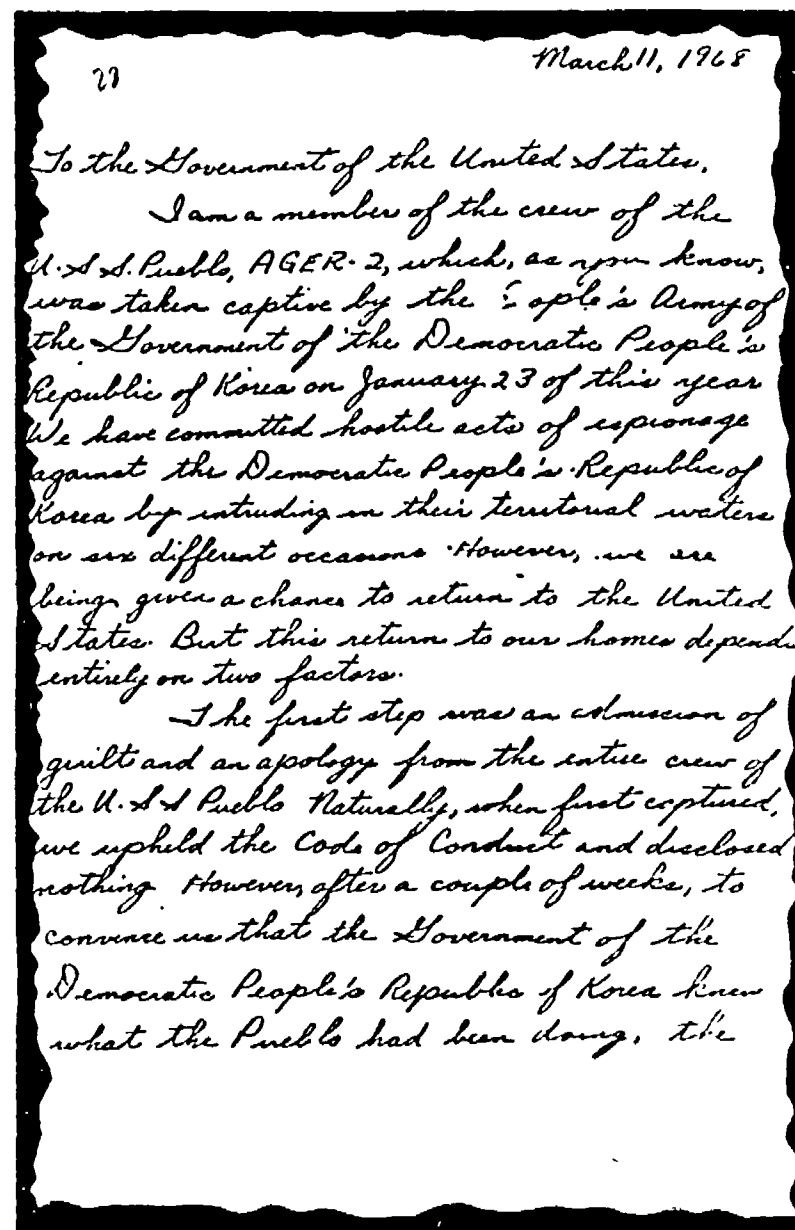 March 11, 1968
To the Government of the United States,
I am a member of the crew of the
U.S.S. Pueblo, AGER-2, which, as you know,
was taken captive by the People's Army of
the Government of the Democratic People's
Republic of Korea on January 23 of this year
We have committed hostile acts of espionage
against the Democratic People's Republic of
Korea by intruding in their territorial waters
on six different occasions. However, we are
being given a chance to return to the United
States. But this return to our homes depends
entirely on two factors.
The first step was an admission of
guilt and an apology from the entire crew of
the U.S.S Pueblo Naturally, when first captured,
we upheld the Code of Conduct and disclosed
nothing However, after a couple of weeks, to
convince us that the Government of the
Democratic People's Republic of Korea knew
what the Pueblo had been doing, the